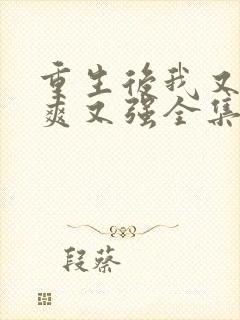 重生后我又
爽又强全集
段蔡